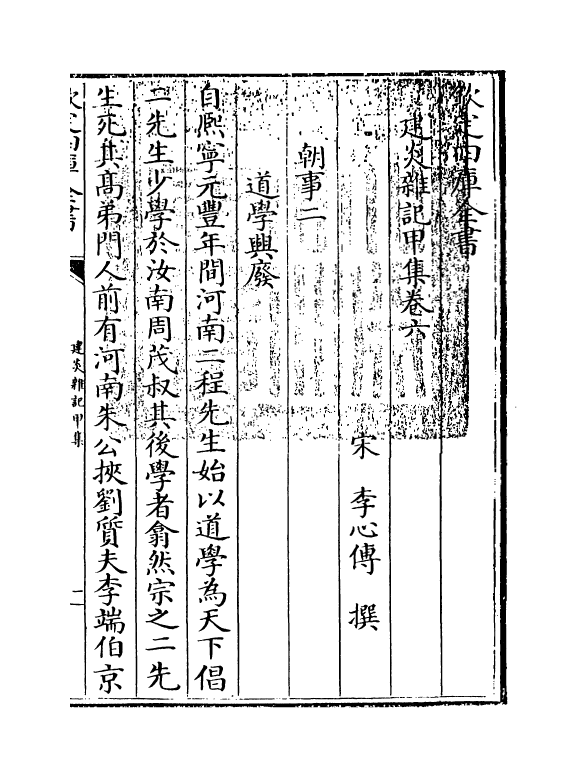 欽定四庫全書
建炎雜記甲集卷六
宋 李心傳 撰
朝事二
道學興廢
自熙寧元豐年間河南二程先生始以道學為天下倡
二先生少學於汝南周茂叔其後學者翕然宗之二先
生死其高弟門人前有河南朱公掞劉質夫李端伯京
建炎雜記甲集